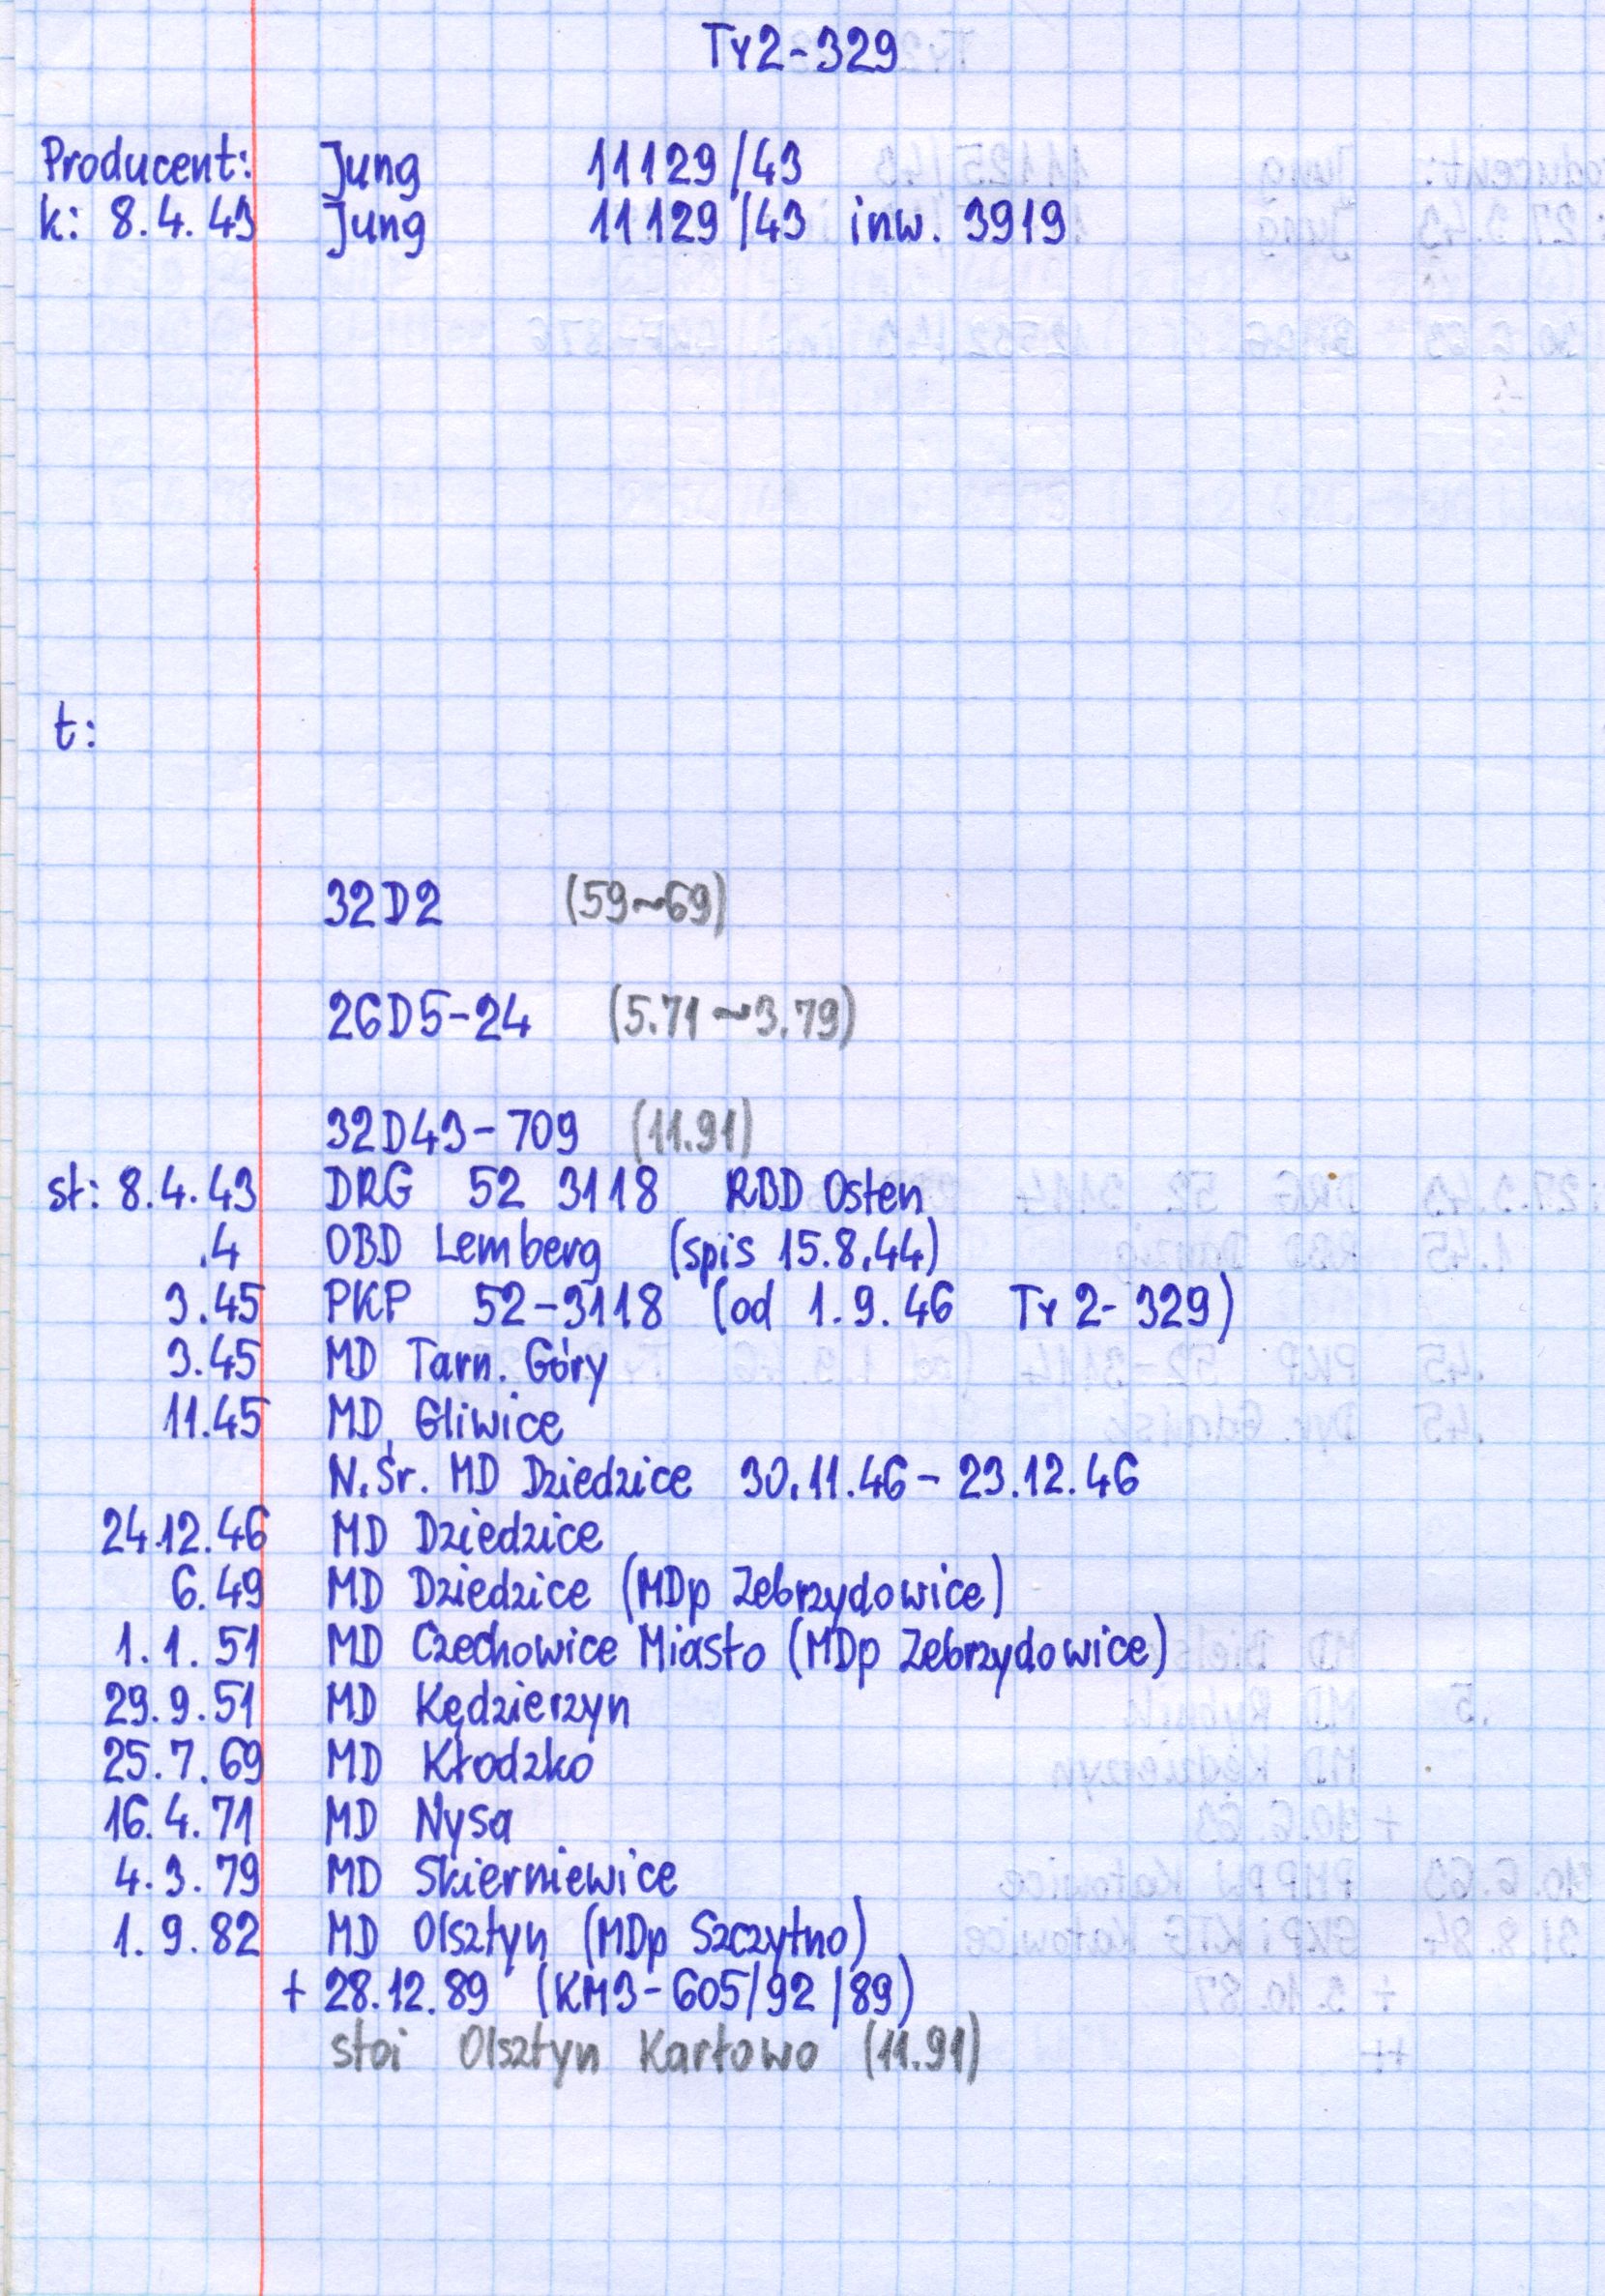 Ty2-329
Producent: Jung 11129/43
k: 8.4.43 Jung 11129/43 inw. 3919
t:
32D2 (59~69)
26D5-24 (5.71~3.79)
32D43-709 (11.91)
st: 8.4.43 DRG 52 3118 RBD Osten
.4 OBD Lemberg (spis 15.8.44)
3.45 PKP 52-3118 (od 1.9.46 Ty2-329)
3.45 MD Tarn. Góry
11.45 MD Gliwice
N.Śr. MD Dziedzice 30.11.46 - 23.12.46
24.12.46 MD Dziedzice
6.49 MD Dziedzice (MDp Zebrzydowice)
1.1.51 MD Czechowice Miasto (MDp Zebrzydowice)
29.9.51 MD Kędzierzyn
25.7.69 MD Kłodzko
16.4.71 MD Nysa
4.3.79 MD Skierniewice
1.9.82 MD Olsztyn (MDp Szczytno)
+ 28.12.89 (KM3-605/92/89)
stoi Olsztyn Kartowo (11.91)